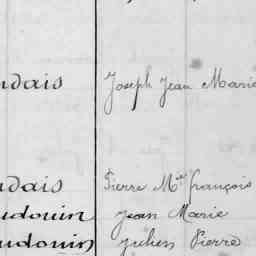 ndais Joseph Jean Marie
ndais Pierre Mie françois
udouin Jean Marie
udouin Julien Pierre